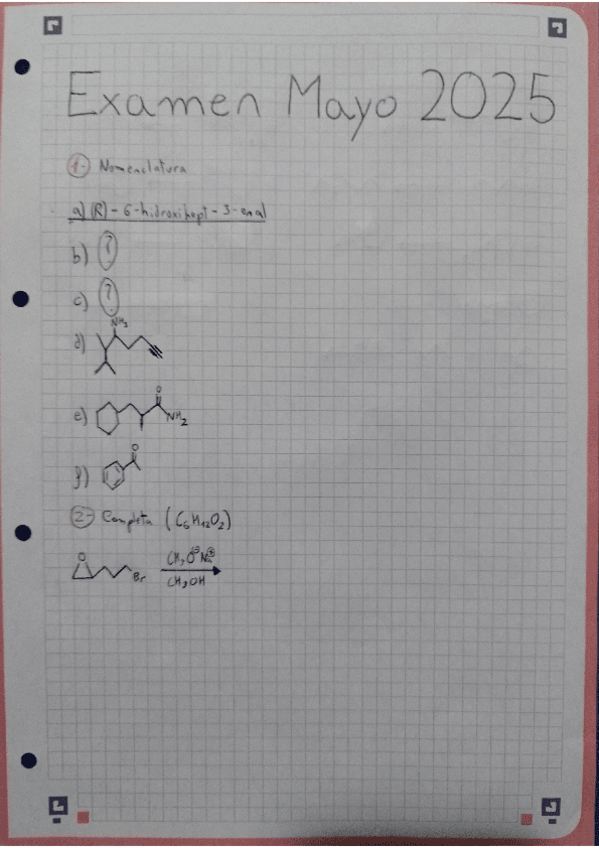 Examen Mayo 2025
1- Nomenclatura
a) (R)-6-hidroxihept-3-enal
b) ?
c) ?
d) NH₂
e) O NH₂
f) O
2- Completa (C₆H₁₂O₂)
O Br CH₃O⊖Na⊕
CH₃OH